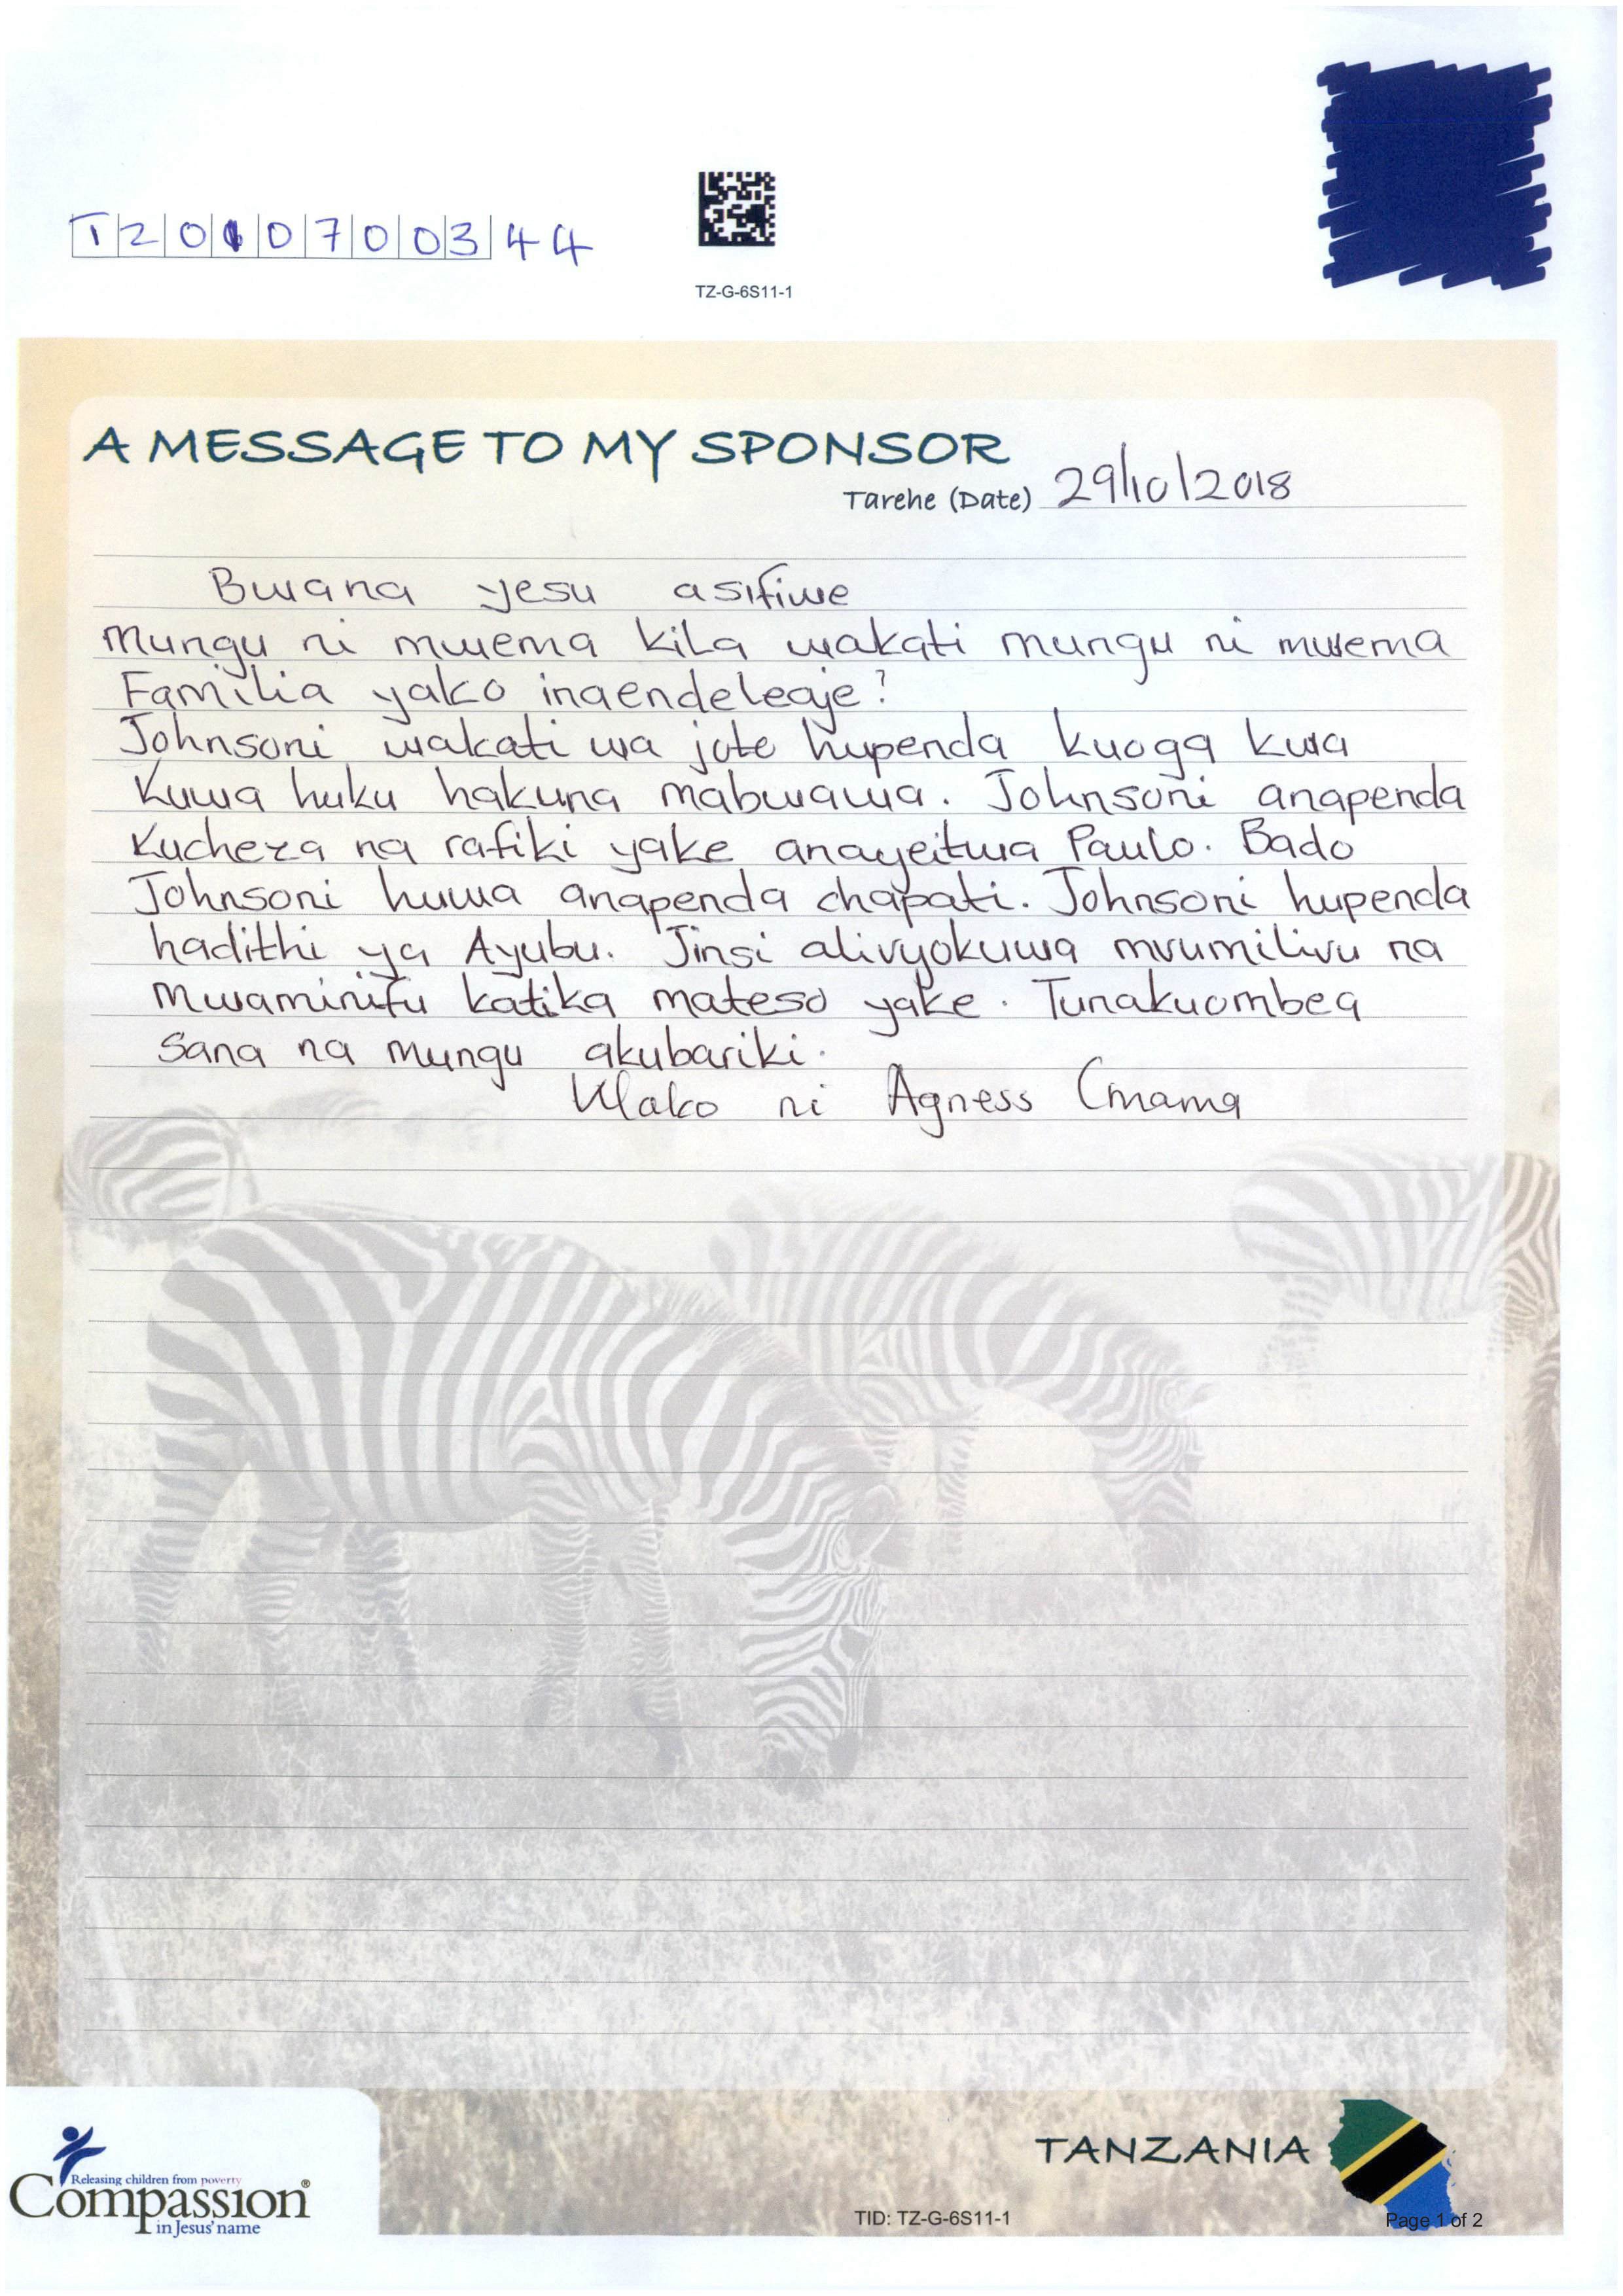 TZ010700344
TZ-G-6S11-1
A MESSAGE TO MY SPONSOR
Tarehe (Date) 29/10/2018
Bwana yesu asifiwe
Mungu ni mwema kila wakati mungu ni mwema
Familia yako inaendeleaje?
Johnsoni wakati wa joto hupenda kuoga kwa
Kuwa huku hakuna mabwawa. Johnsoni anapenda
Kucheza na rafiki yake anayeitwa Paulo. Bado
Johnsoni huwa anapenda chapati. Johnsoni hupenda
hadithi ya Ayubu. Jinsi alivyokuwa mvumilivu na
Mwaminifu katika mateso yake. Tunakuombea
Sana na mungu akubariki.
Wako ni Agness (mama
TANZANIA
Releasing children from poverty
Compassion®
in Jesus' name
TID: TZ-G-6S11-1
Page 1 of 2